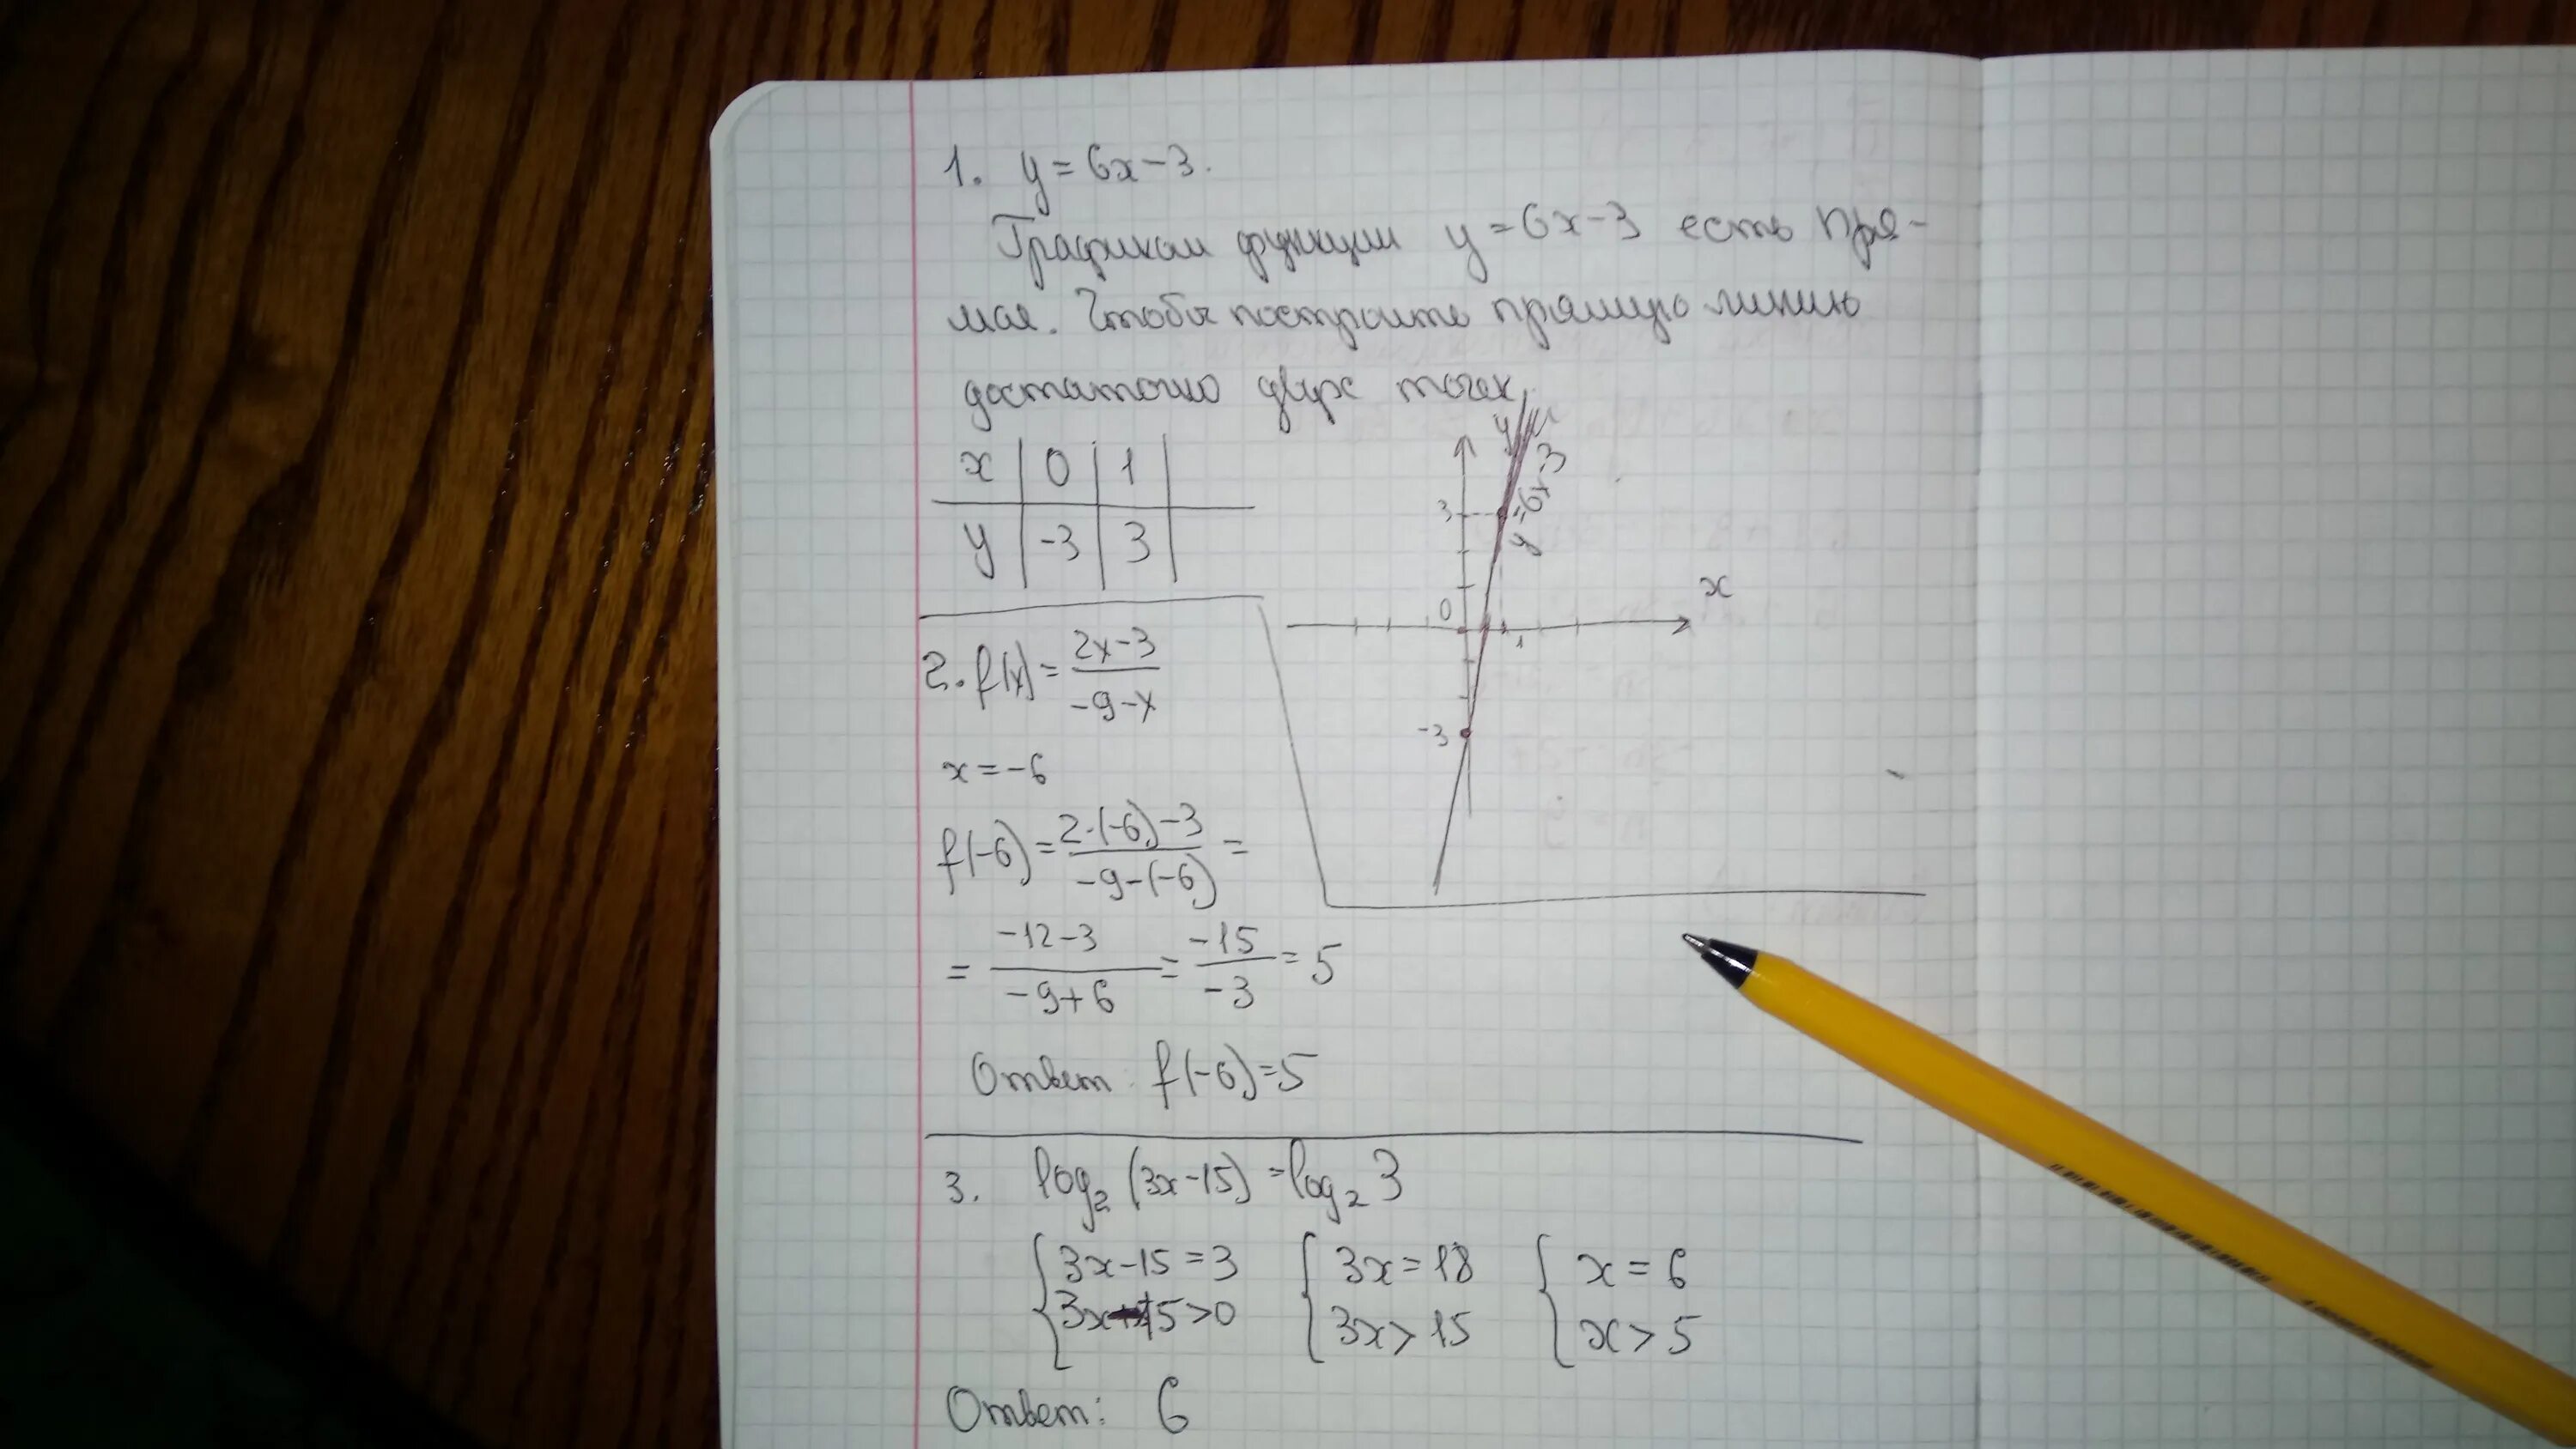 1. y = 6x - 3.
Графиком функции y = 6x - 3 есть пря-
мая. Чтобы построить прямую линию
достаточно двух точек.
x | 0 | 1 |
y | -3 | 3 |
y
3
y = 6x - 3
0
1
x
-3
2. f(x) = (2x-3)/(-9-x)
x = -6
f(-6) = (2·(-6)-3)/(-9-(-6)) =
= (-12-3)/(-9+6) = (-15)/(-3) = 5
Ответ: f(-6) = 5
3. log₂ (3x-15) = log₂ 3
{ 3x-15 = 3 { 3x = 18 { x = 6
3x-15 > 0 3x > 15 x > 5
Ответ: 6